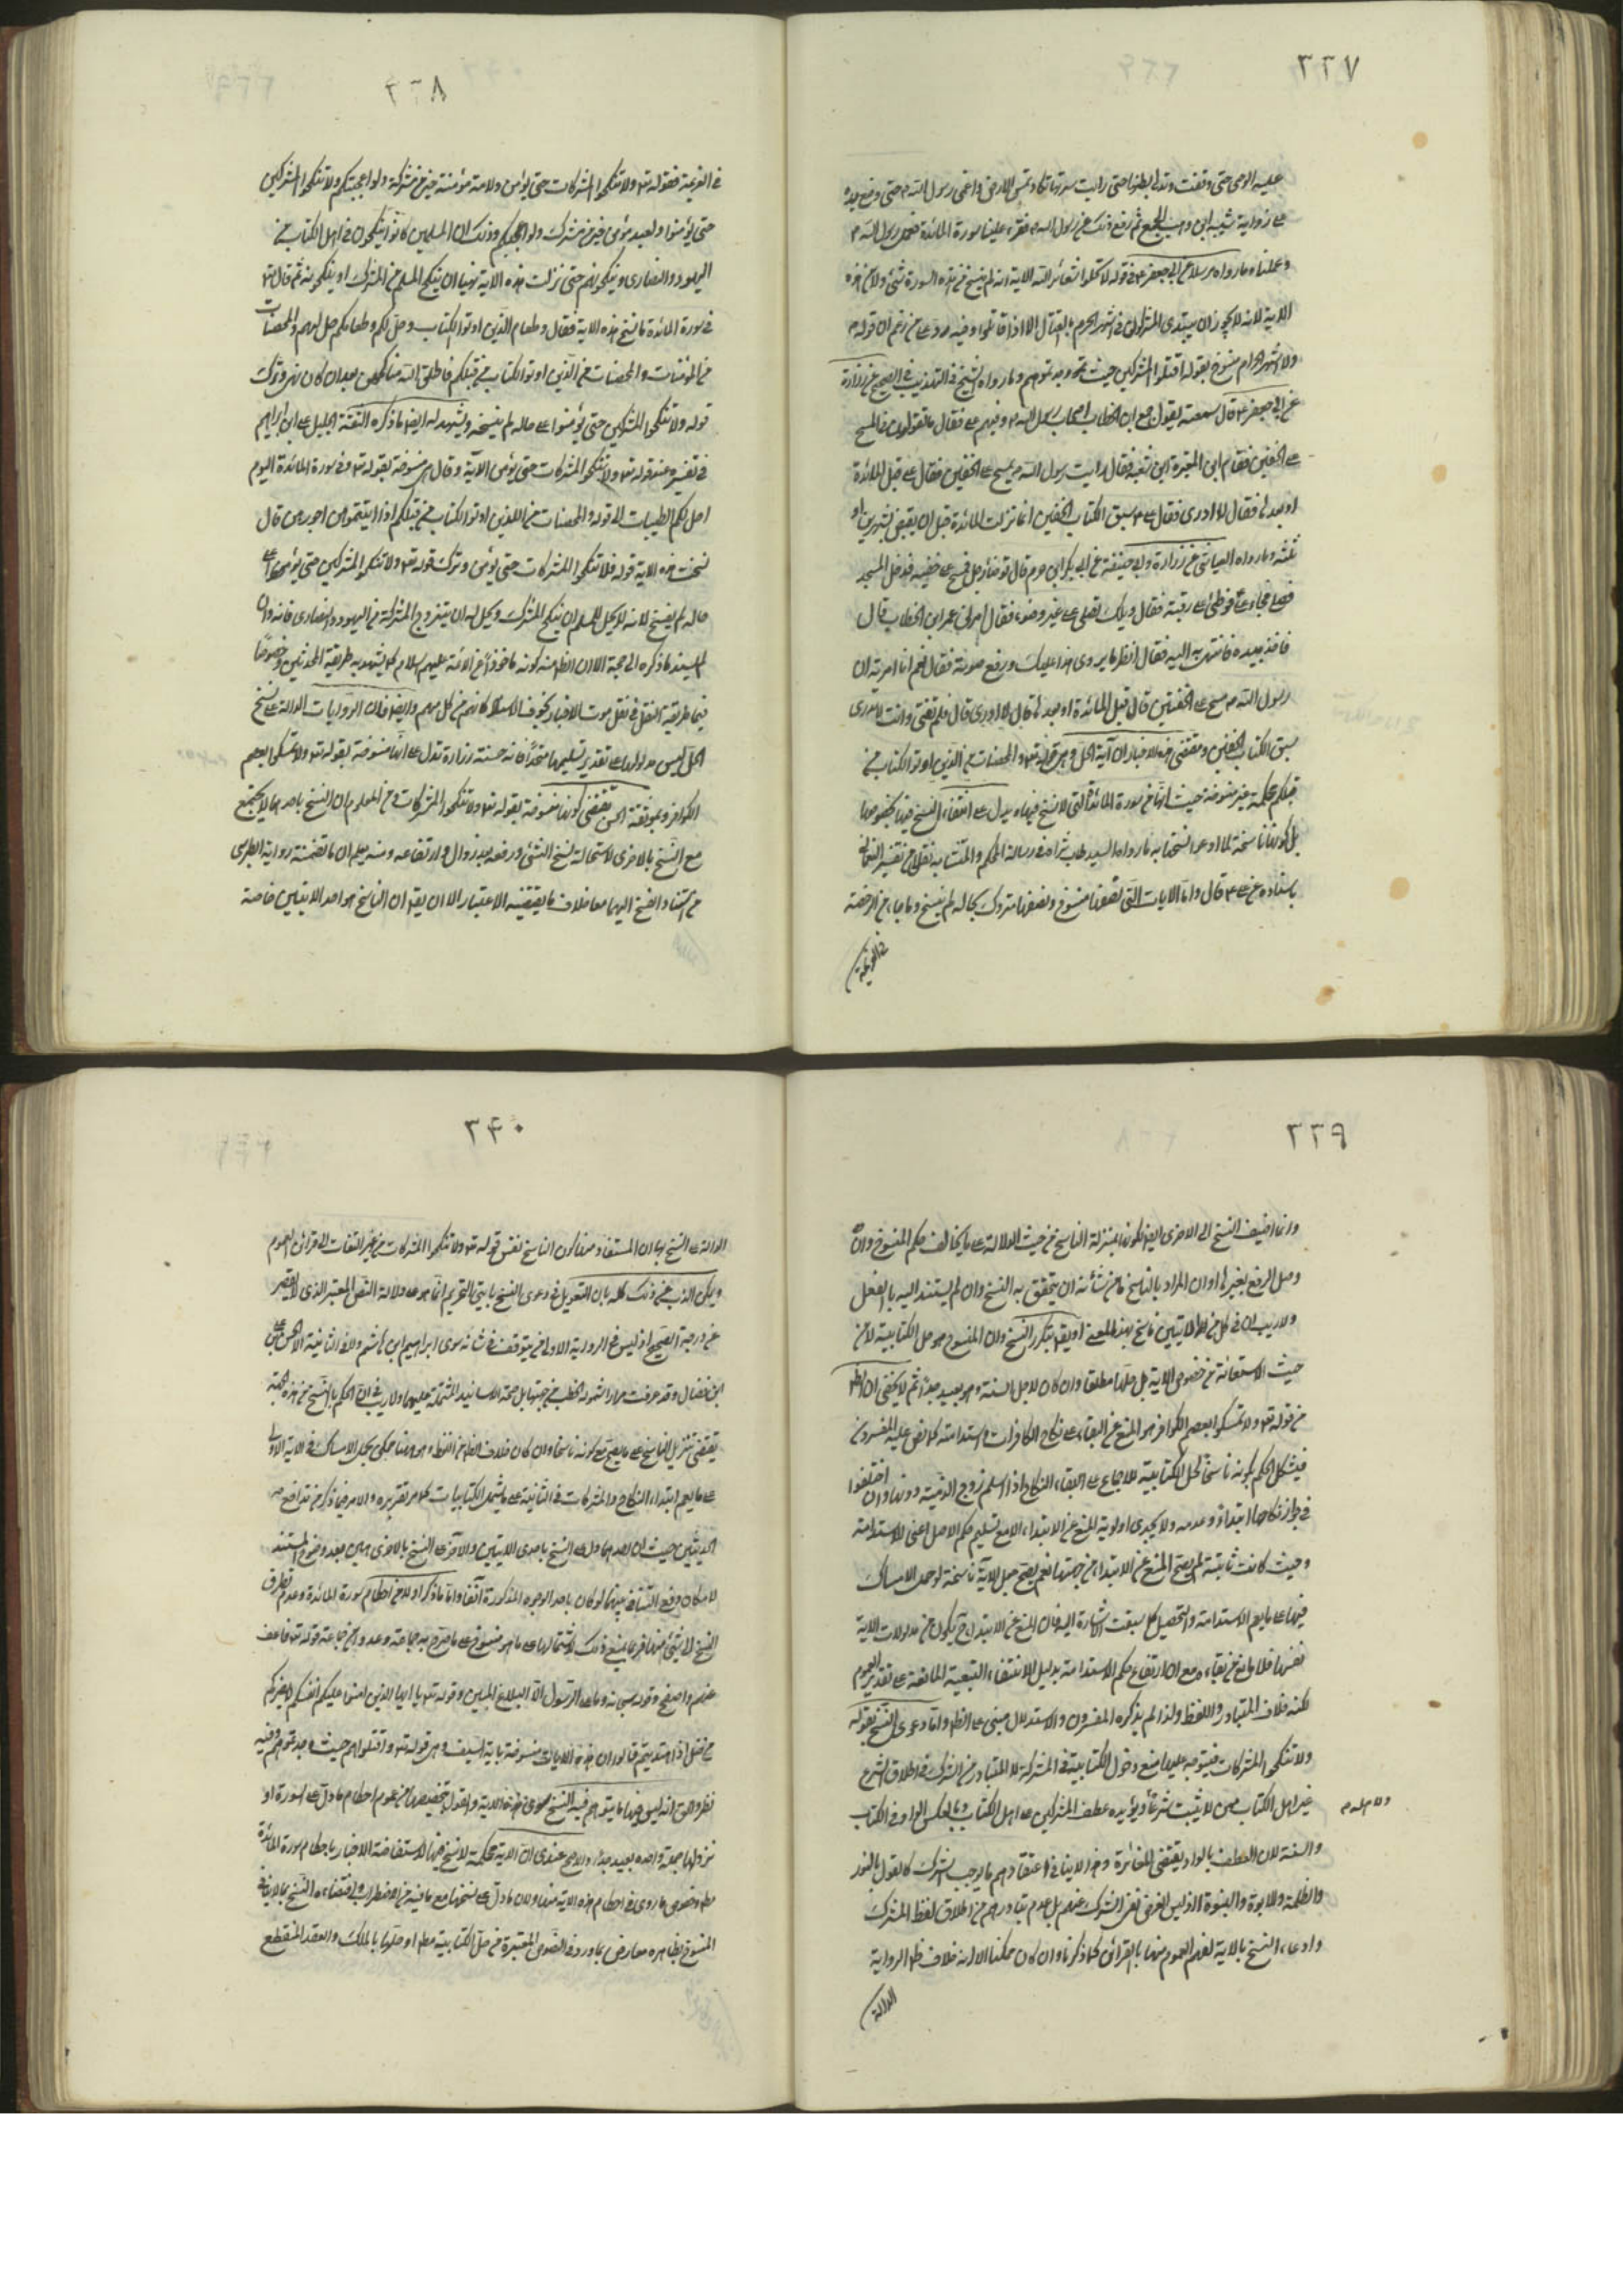 ٣٣٧
عليه الوحى حتى وقفت وتدلى بطنها حتى رايت سرتها تكاد تمس الارض واغمى رسول الله ص حتى وضع يده
على ذوابة شيبة ابن وهب الجمحى ثم رفع ذلك عن رسول الله ص فقرء علينا سورة المائدة فعمل رسول الله ص
وعملناه ما رواه مرسلا عن ابى جعفر ع فى قوله لا تحلوا شعائر الله الاية انه لم ينسخ من هذه السورة شئ ولا من هذه
الاية لانه لا يجوز ان يبتدى المشركون فى الشهر الحرم بالقتال الا اذا قاتلوا وفيه رد على من زعم ان قوله
ولا الشهر الحرام منسوخ بقوله اقتلوا المشركين حيث وجدتموهم وما رواه الشيخ فى التهذيب فى الصحيح عن زرارة
عن ابى جعفر ع قال سمعته يقول جمع ابن الخطاب اصحاب رسول الله ص وفيهم على فقال ما تقولون فى المسح
على الخفين فقام ابن المغيرة ابن شعبة فقال رايت رسول الله ص يمسح على الخفين فقال على قبل المائدة
او بعدها فقال لا ادرى فقال على ع سبق الكتاب الخفين انما نزلت المائدة قبل ان يقبض بشهرين او
ثلثة وما رواه العياشى عن زرارة وابى حنيفة عن ابى بكر ابن حزم قال توضأ رجل فمسح على خفيه فدخل المسجد
فصلى فجاء على فوطئ على رقبته فقال ويلك تصلى على غير وضوء فقال امرنى عمر ابن الخطاب قال
فاخذ بيده فانتهى به اليه فقال انظر ما يروى هذا عليك ورفع صوته فقال نعم انا امرته ان
رسول الله ص مسح على الخفين قال قبل المائدة او بعدها قال لا ادرى قال فلم تفتى وانت لا تدرى
سبق الكتاب الخفين ومقتضى هذه الاخبار ان آية الحل وهى قوله تعو والمحصنات من الذين اوتوا الكتاب من
قبلكم محكمة غير منسوخة حيث انها من سورة المائدة التى لا نسخ فيها ويدل على انتفاء النسخ فيها بخصوصها
بل كونها ناسخة لما ادعى نسخها به ما رواه السيد طاب ثراه فى رسالة المحكم والمتشابه نقلا من تفسير النعمانى
باسناده عن على ع قال واما الايات التى نصفها منسوخ ونصفها متروك بحاله لم ينسخ وما جاء من الرخصة
فى العزيمة
٣٣٨
فى العزيمة فقوله تعو ولا تنكحوا المشركات حتى يؤمن ولامة مؤمنة خير من مشركة ولو اعجبتكم ولا تنكحوا المشركين
حتى يؤمنوا ولعبد مؤمن خير من مشرك ولو اعجبكم وذلك ان المسلمين كانوا ينكحون فى اهل الكتاب من
اليهود والنصارى وينكحونهم حتى نزلت هذه الاية نهيا ان ينكح المسلم من المشرك او ينكحونه ثم قال تعو
فى سورة المائدة ما نسخ هذه الاية فقال وطعام الذين اوتوا الكتاب وحل لكم وطعامكم حل لهم والمحصنات
من المؤمنات والمحصنات من الذين اوتوا الكتاب من قبلكم فاطلق الله مناكحتهن بعد ان كان نهى وترك
قوله ولا تنكحوا المشركين حتى يؤمنوا على حاله لم ينسخه ويشهد له ايضا ما ذكره الثقة الجليل على ابن ابراهيم
فى تفسيره عند قوله تعو ولا تنكحوا المشركات حتى يؤمن الآية وقال هى منسوخة بقوله تعو فى سورة المائدة اليوم
احل لكم الطيبات الى قوله والمحصنات من الذين اوتوا الكتاب من قبلكم اذا اتيتموهن اجورهن قال
نسخت هذه الاية قوله فلا تنكحوا المشركات حتى يؤمن وترك قوله تعو ولا تنكحوا المشركين حتى يؤمنوا على
حاله لم ينسخ لانه لا يحل للمسلم ان ينكح المشرك ويحل له ان يتزوج المشركة من اليهود والنصارى فانه وان
لم يسند ما ذكره الى حجة الا ان الظ منه كونه ماخوذا عن الائمة عليهم السلام كما يشهد به طريقة المحدثين وخصوصا
فيما طريقة النقل فى نقل متون الاخبار بحذف الاسناد كانه من كل منهم وايضا فان الروايات الدالة على نسخ
الحل ليس مدلولها على تقدير تسليمها متحدا فانه حسنة زرارة تدل على انها منسوخة بقوله تعو ولا تمسكوا بعصم
الكوافر وموثقة الحسن تقتضى كونها منسوخة بقوله تعو ولا تنكحوا المشركات ومن المعلوم ان النسخ باحدهما لا يجتمع
مع النسخ بالاخرى لاستحالة نسخ الشئ ورفعه بعد زواله وارتفاعه ومنه يعلم ان ما تضمنته رواية الطبرسى
من استناد النسخ اليهما معا خلاف ما يقتضيه الاعتبار الا ان يقو ان الناسخ هو احد الايتين خاصة
٣٣٩
وانما اضيف النسخ الى الاخرى ايضا لكونها بمنزلة الناسخ من حيث الدلالة على ما يخالف حكم المنسوخ وان
وصل الرفع بغيرها او ان المراد بالناسخ ما من شأنه ان يتحقق به النسخ وان لم يستند اليه بالفعل
ولا ريب ان فى كل من الايتين ناسخ بهذا المعنى او يقو بتكرر النسخ وان المنسوخ هو حل الكتابية لا من
حيث الاستفادة من خصوص الاية بل حلها مطلقا وان كان لاجل السنة وهو بعيد جدا ثم لا يخفى ان الظ
من قوله تعو ولا تمسكوا بعصم الكوافر هو المنع عن البقاء على نكاح الكافرات واستدامته كما نص عليه المفسرون
فيشكل الحكم بكونه ناسخا لحل الكتابية للاجماع على ابقاء النكاح اذا اسلم زوج الذمية دونها وان اختلفوا
فى جواز نكاحها ابتداء وعدمه ولا يجدى اولوية المنع عن الابتداء الا مع تسليم حكم الاصل اعنى الاستدامة
وحيث كانت ثابتة لم يصح المنع عن الابتداء من جهتها نعم يصح جعل الاية ناسخة لو حمل الامساك
فيها على ما يعم الاستدامة والتحصيل كما سبقت الاشارة اليه فان المنع عن الابتداء ح يكون من مدلولات الاية
نفسها فلا مانع من بقاءه مع ارتفاع حكم الاستدامة بدليل لانتفاء التبعية المانعة على تقدير العموم
لكنه خلاف المتبادر من اللفظ ولذا لم يذكره المفسرون والاستدلال مبنى على الظ واما دعوى النسخ بقوله
ولا تنكحوا المشركات فيتوجه عليها منع دخول الكتابية فى المشركة لان المتبادر من الشرك فى اطلاق الشرع
غير اهل الكتاب ممن لا يثبت شرعا ويؤيده عطف المشركين على اهل الكتاب وبالعكس الوارد فى الكتاب
والسنة لان العطف بالواو يقتضى المغايرة وهذا لا ينافى اعتقادهم ما يوجب الشرك كالقول بالنور
والظلمة والابوة والبنوة اذ ليس الغرض نفى الشرك عنهم بل عدم تبادرهم من اطلاق لفظ المشرك
وادعاء النسخ بالاية لفهم العموم منها بالقرائن كما ذكرنا وان كان ممكنا الا انه خلاف ظ الرواية
الدالة
٣٤٠
الدالة على النسخ بها لان المستفاد منها كون الناسخ نفس قوله تعو ولا تنكحوا المشركات من غير التفات الى قرائن العموم
ويمكن الذب عن ذلك كله بان التعويل فى دعوى النسخ بايتى التحريم انما هو على دلالة النص المعتبر الذى لا يقصر
عن درجة الصحيح اذ ليس فى الرواية الاولى من يتوقف فى شانه سوى ابراهيم ابن هاشم ولا فى الثانية الا الحسن بن على
ابن فضال وقد عرفت مرارا سهولة الخطب من جهتهما بل صحة الاسانيد المشتملة عليهما ولا ريب فى ان الحكم بالنسخ من هذه الجهة
يقتضى تنزيل الناسخ على ما يصح مع كونه ناسخا وان كان خلاف الظ من اللفظ وهو هنا ممكن بحمل الامساك فى الاية الاولى
على ما يعم ابتداء النكاح والمشركات فى الثانية على ما يشمل الكتابيات كما مر تقريره والامر فيما ذكر من تدافع
الحديثين حيث ان احدهما دل على النسخ باحدى الايتين والآخر على النسخ بالاخرى هين بعد وضوح المستند
لامكان دفع التنافى بينهما لو كان باحد الوجوه المذكورة آنفا واما ما ذكر اولا من احكام سورة المائدة وعدم تطرق
النسخ الى شئ منها فربما يمنع ذلك لاشتمالها على ما هو منسوخ على ما صرح به جماعة وعدوا من جماعة قوله تعو فاعف
عنهم واصفح وقوله سبحانه وما على الرسول الا البلاغ المبين وقوله تعو يا ايها الذين امنوا عليكم انفسكم لا يضركم
من ضل اذا اهتديتم قالوا ان هذه الايات منسوخة باية السيف وهى قوله تعو واقتلوهم حيث وجدتموهم وفيه
نظر والحق انه ليس فيها ما يتوهم فيه النسخ سوى هذه الاية والقول بتخصيصها من عموم احكام ما دل على السورة او
نزولها جملة واحدة بعيد جدا والاصح عندى ان الاية محكمة لا نسخ فيها لاستفاضة الاخبار باحكام سورة المائدة
مط وخصوص ما روى فى احكام هذه الاية منها ولان ما دل على نسخها مع ما فيه من الاضطراب فى اقتضاء النسخ بالاية
المنسوخ بظاهره معارض بما ورد فى النصوص المعتبرة من حل الكتابية مط او حلها بالملك والعقد المنقطع